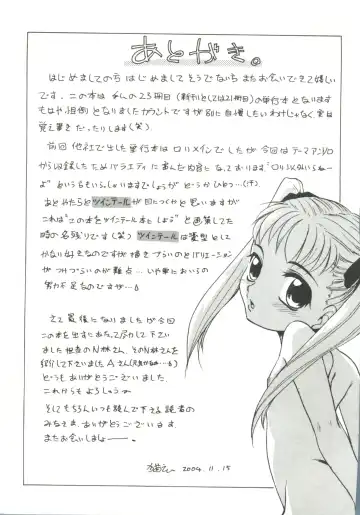 あとがき。
はじめましての方はじめまして そうでない方またお会いできて嬉しい
です。この本は私の23冊目(新刊としては21冊目)の単行本となります
もはや恒例となりましたカウントですが別に自慢したいわけじゃなく実は
覚え書きだったりします(笑)
前回他社で出した単行本はロリメインでしたが今回はテーマアンソロ
から収録したためバラエティに富んだ内容になっております
あとやたらとツインテールが目につくかと思いますが
これは"この本をツインテール本にしよう"と画策してた
時の名残りです(笑) ツインテールは髪型として
かなり好きなのですが描きづらいのとバリエーション
がつけづらいのが難点…いや単においらの
努力不足なのですが…
さて最後になりましたが今回
この本を出すにあたって尽力して下さい
ました担当のN林さん、そのN林さんを
紹介して下さいましたAさん
どうもありがとうございました
これからもよろしゅうー
そしてもちろんいつも読んで下さる読者の
みなさま、ありがとうございます。
またお会いしましょー。
2004.11.15